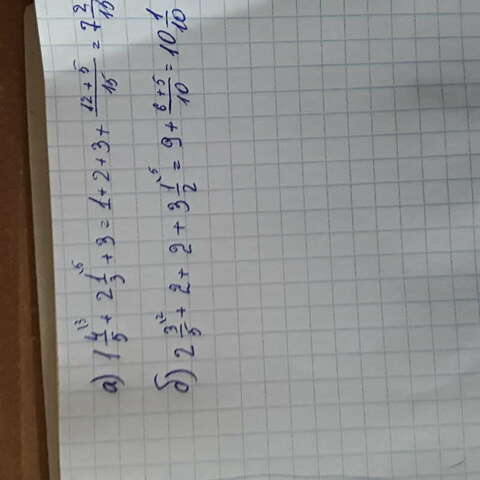 а) 1 4/5 \3 + 2 1/3 \5 + 3 = 1 + 2 + 3 + (12 + 5)/15 = 7 2/15
б) 2 3/5 \2 + 2 + 2 + 3 1/2 \5 = 9 + (6 + 5)/10 = 10 1/10